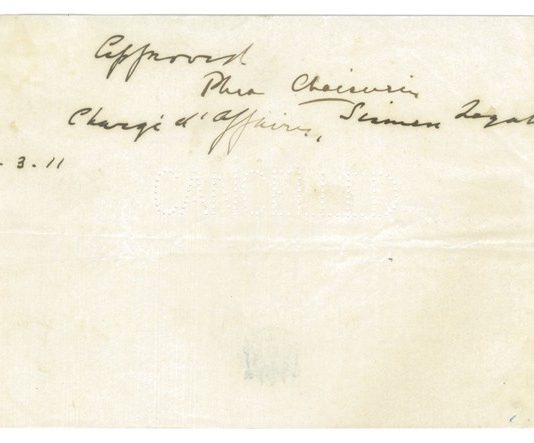 Approved
Phra Chaisurin
Chargé d'Affaires, Siamese Legat
- 3.11
CANCELLED